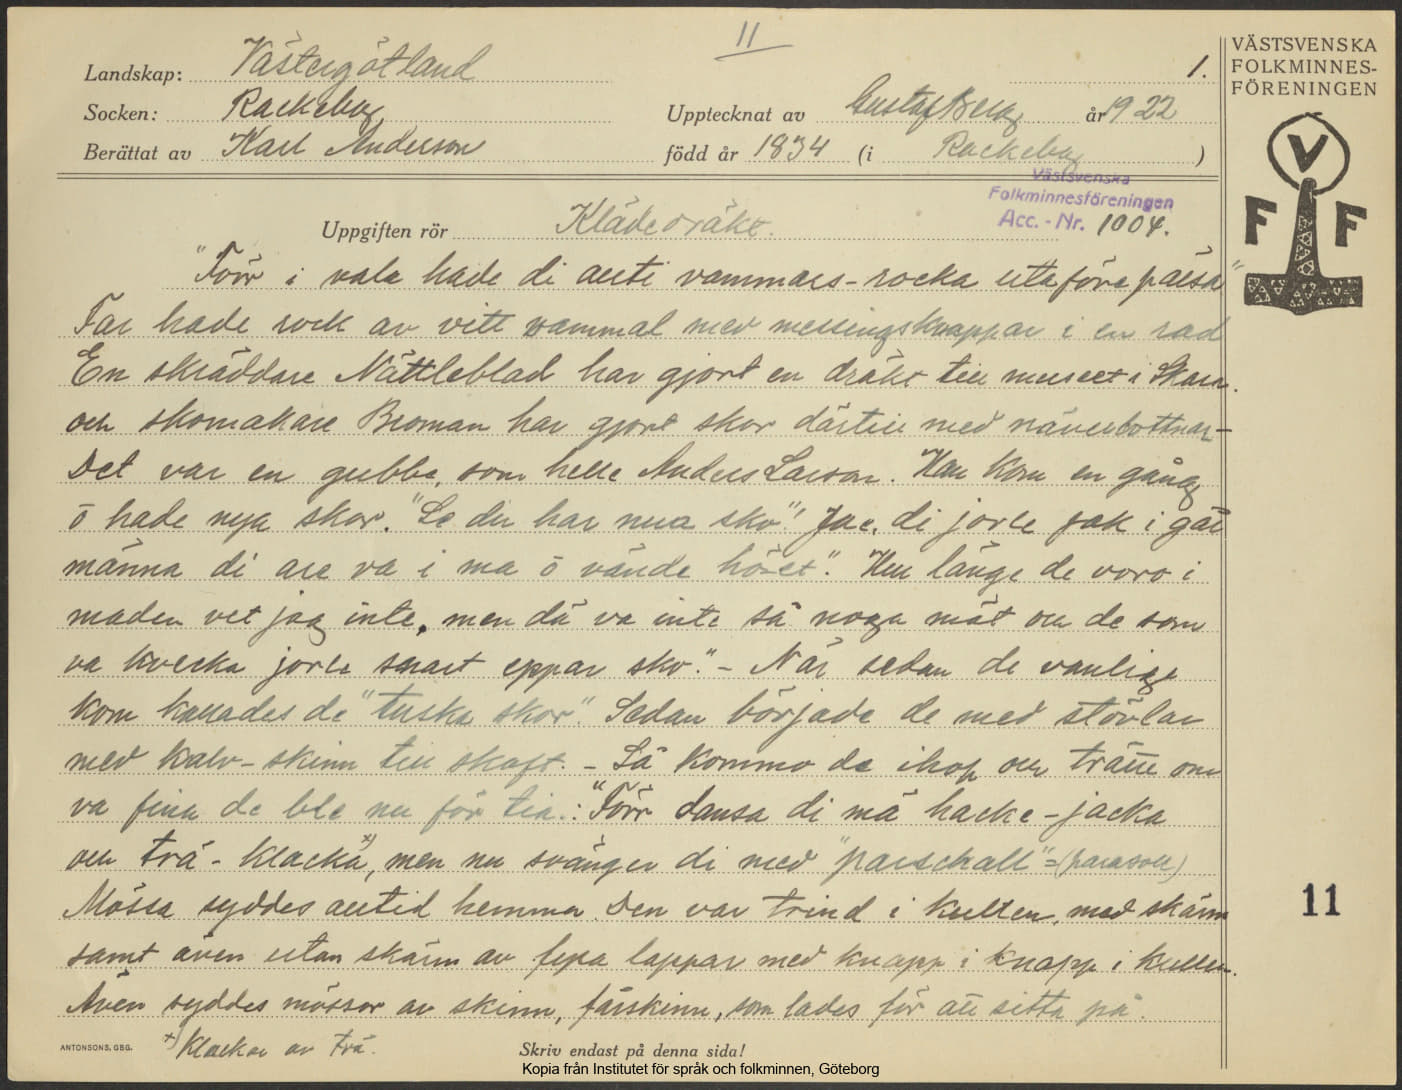 11
1.
Landskap: Västergötland
Socken: Rackeby
Upptecknat av Gustaf Berg år 1922
Berättat av Karl Anderson född år 1834 (i Rackeby)
Västsvenska
Folkminnesföreningen
Acc. - Nr. 1004.
Uppgiften rör Klädedräkt.
"Förr i vala hade di allti vammars-rocka utaföre pälsa"
Far hade rock av vitt vammal med messingsknappar i en rad
En skräddare Nättleblad har gjort en dräkt till museet i Skara.
och skomakare Broman har gjort skor därtill med näverbottnar-
Det var en gubbe, som hette Anders Larson. Han kom en gång
ö hade nya skor. "Se du har nua sko"! Jae, di jorle jak i gär
männa di are va i ma ö vände hö-et". Hur länge de voro i
maden vet jag inte, men dä va inte så noga mät och de som
va kvecka jorle snart eppar sko." - När sedan de vanliga
kom kallades de "tuska skor". Sedan började de med stövlar
med kalv-skinn till skaft. - Så kommo de ihop och trätte om
va fina de ble nu för tia.: "Förr dansa di mä hacke-jacka
och trä-klacka x), men nu svänger di med "parschall" = (parasoll)
Mössa syddes alltid hemma. Den var trind i kullen, med skärm
samt även utan skärm av fyra lappar med knapp i knapp i kullen.
Även syddes mössor av skinn, fårskinn, som lades för att sitta på.
x) Klackar av trä.
ANTONSONS, GBG.
Skriv endast på denna sida!
Kopia från Institutet för språk och folkminnen, Göteborg
VÄSTSVENSKA
FOLKMINNES-
FÖRENINGEN
V
F F
11